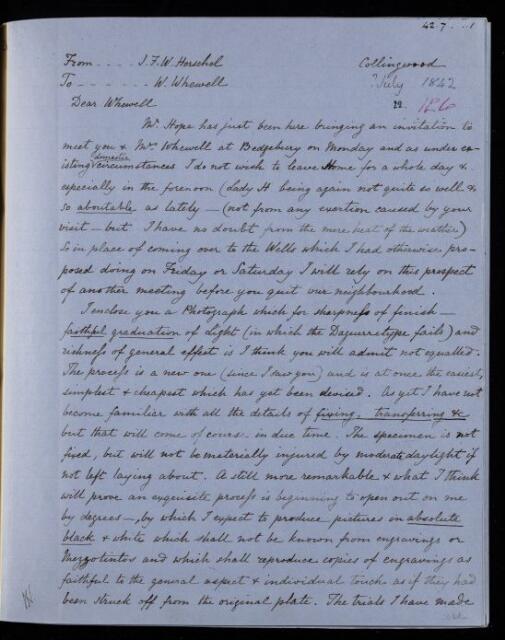 42.7. 1
From - - - - J. F. W. Herschel Collingwood
To - - - - - - W. Whewell July 1842
Dear Whewell 126
Mr. Hope has just been here bringing an invitation to
meet you & Mrs. Whewell at Bedgebury on Monday and as under ex-
domestic
isting circumstances I do not wish to leave Home for a whole day &
especially in the forenoon (Lady H being again not quite so well &
so aboutable as lately — (not from any exertion caused by your
visit — but I have no doubt from the mere heat of the weather)
So in place of coming over to the Wells which I had otherwise pro-
posed doing on Friday or Saturday I will rely on this prospect
of another meeting before you quit our neighbourhood.
I enclose you a Photograph which for sharpness of finish —
faithful graduation of light (in which the Daguerretype fails) and
richness of general effect is I think you will admit not equalled.
The process is a new one (since I saw you) and is at once the easiest,
simplest & cheapest which has yet been devised. As yet I have not
become familiar with all the details of fixing, transferring &c
but that will come of course in due time. The specimen is not
fixed, but will not be materially injured by moderate daylight if
not left laying about. A still more remarkable & what I think
will prove an exquisite process is beginning to open out on me
by degrees —, by which I expect to produce pictures in absolute
black & white which shall not be known from engravings or
Mezzotintos and which shall reproduce copies of engravings as
faithful to the general aspect & individual touch as if they had
been struck off from the original plate. The trials I have made